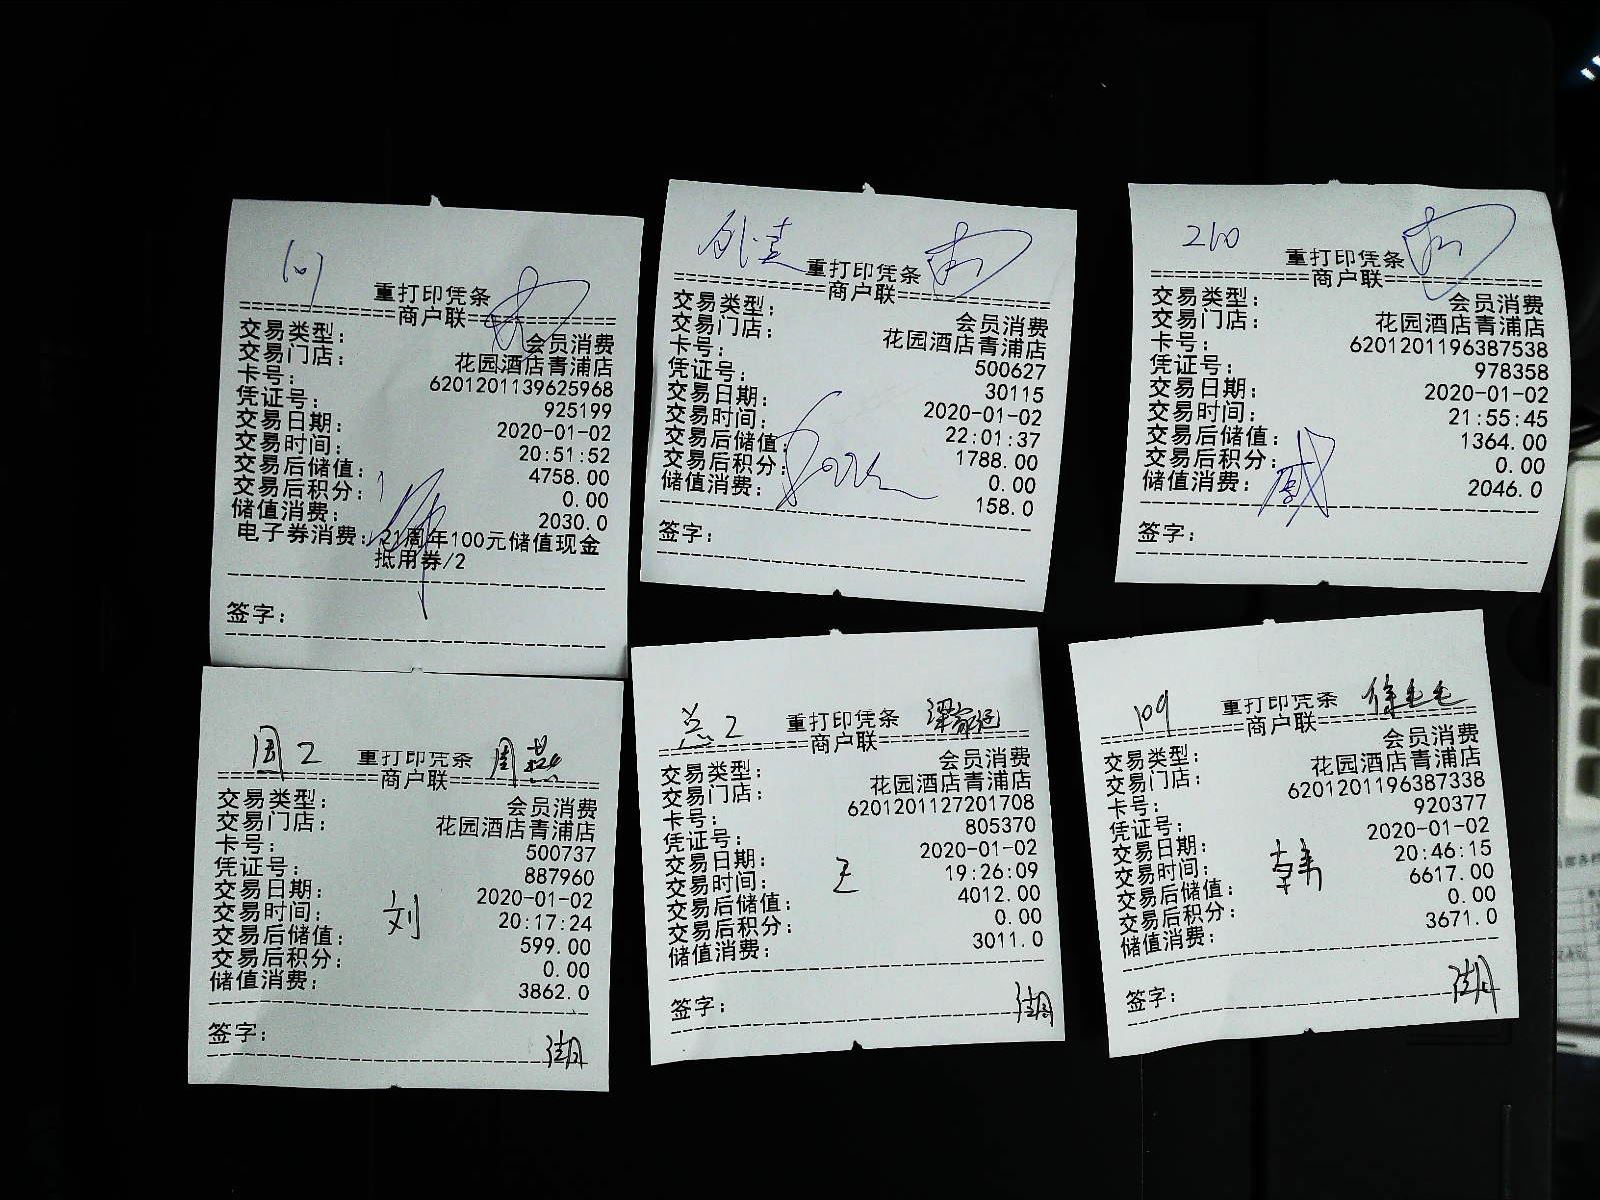 101
重打印凭条
==========商户联==========
交易类型: 会员消费
交易门店: 花园酒店青浦店
卡号: 6201201139625968
凭证号: 925199
交易日期: 2020-01-02
交易时间: 20:51:52
交易后储值: 4758.00
交易后积分: 0.00
储值消费: 2030.0
电子券消费: 21周年100元储值现金
抵用券/2
签字:
外卖
重打印凭条
==========商户联==========
交易类型: 会员消费
交易门店: 花园酒店青浦店
卡号: 500627
凭证号: 30115
交易日期: 2020-01-02
交易时间: 22:01:37
交易后储值: 1788.00
交易后积分: 0.00
储值消费: 158.0
签字:
210
重打印凭条
==========商户联==========
交易类型: 会员消费
交易门店: 花园酒店青浦店
卡号: 6201201196387538
凭证号: 978358
交易日期: 2020-01-02
交易时间: 21:55:45
交易后储值: 1364.00
交易后积分: 0.00
储值消费: 2046.0
签字:
周2 重打印凭条 周燕
==========商户联==========
交易类型: 会员消费
交易门店: 花园酒店青浦店
卡号: 500737
凭证号: 887960
交易日期: 2020-01-02
交易时间: 20:17:24
刘
交易后储值: 599.00
交易后积分: 0.00
储值消费: 3862.0
签字:
2 重打印凭条
==========商户联==========
交易类型: 会员消费
交易门店: 花园酒店青浦店
卡号: 6201201127201708
凭证号: 805370
交易日期: 2020-01-02
交易时间: 19:26:09
王
交易后储值: 4012.00
交易后积分: 0.00
储值消费: 3011.0
签字:
109 重打印凭条 徐毛毛
==========商户联==========
交易类型: 会员消费
交易门店: 花园酒店青浦店
卡号: 6201201196387338
凭证号: 920377
交易日期: 2020-01-02
交易时间: 20:46:15
韩
交易后储值: 6617.00
交易后积分: 0.00
储值消费: 3671.0
签字: